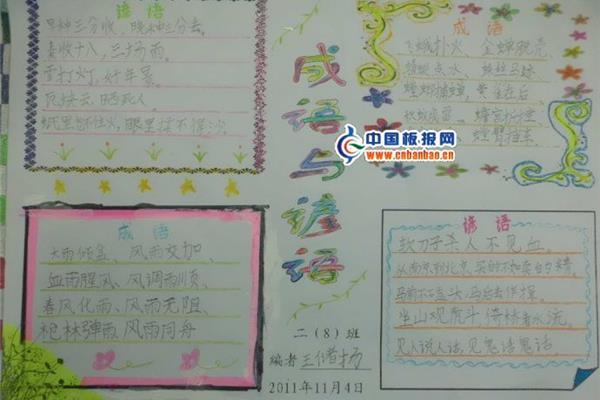 谚语
早种三分收，晚种三分丢。
春收十八，三场雨。
雪打灯，好年景。
瓦块云，晒死人。
纸里包不住火，眼里揉不得沙
成语
飞蛾扑火、金蝉脱壳
蜻蜓点水、蛛丝马迹
螳螂捕蝉，黄雀在后
成语与谚语
中国板报网
www.cnbanbao.cn
成语
大雨倾盆、风雨交加、
血雨腥风、风调雨顺、
春风化雨、风雨无阻、
枪林弹雨、风雨同舟
二（8）班
编者
2011年11月4日
谚语
软刀子杀人不见血。
从南京到北京，买的不如卖的精。
坐山观虎斗
见人说人话，见鬼话鬼话。